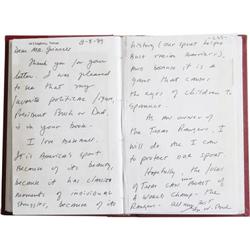 Arlington, Texas
8-8-89
Dear Mr. Grinnell
Thank you for your
letter. I was pleased
to see that my
favorite political figure,
President Bush or Dad,
is in your book.
I love baseball.
It is America's sport.
Because of its beauty,
because it has classic
moments of individual
struggles, because of its
history (our sport helped
bust racism barriers),
and because it is a
game that causes
the eyes of children to
sparkle.
As an owner of
the Texas Rangers, I
will do all I can
to protect our sport.
Hopefully, the folks
of Texas can boast of
a World Champ - the
Rangers. All my best,